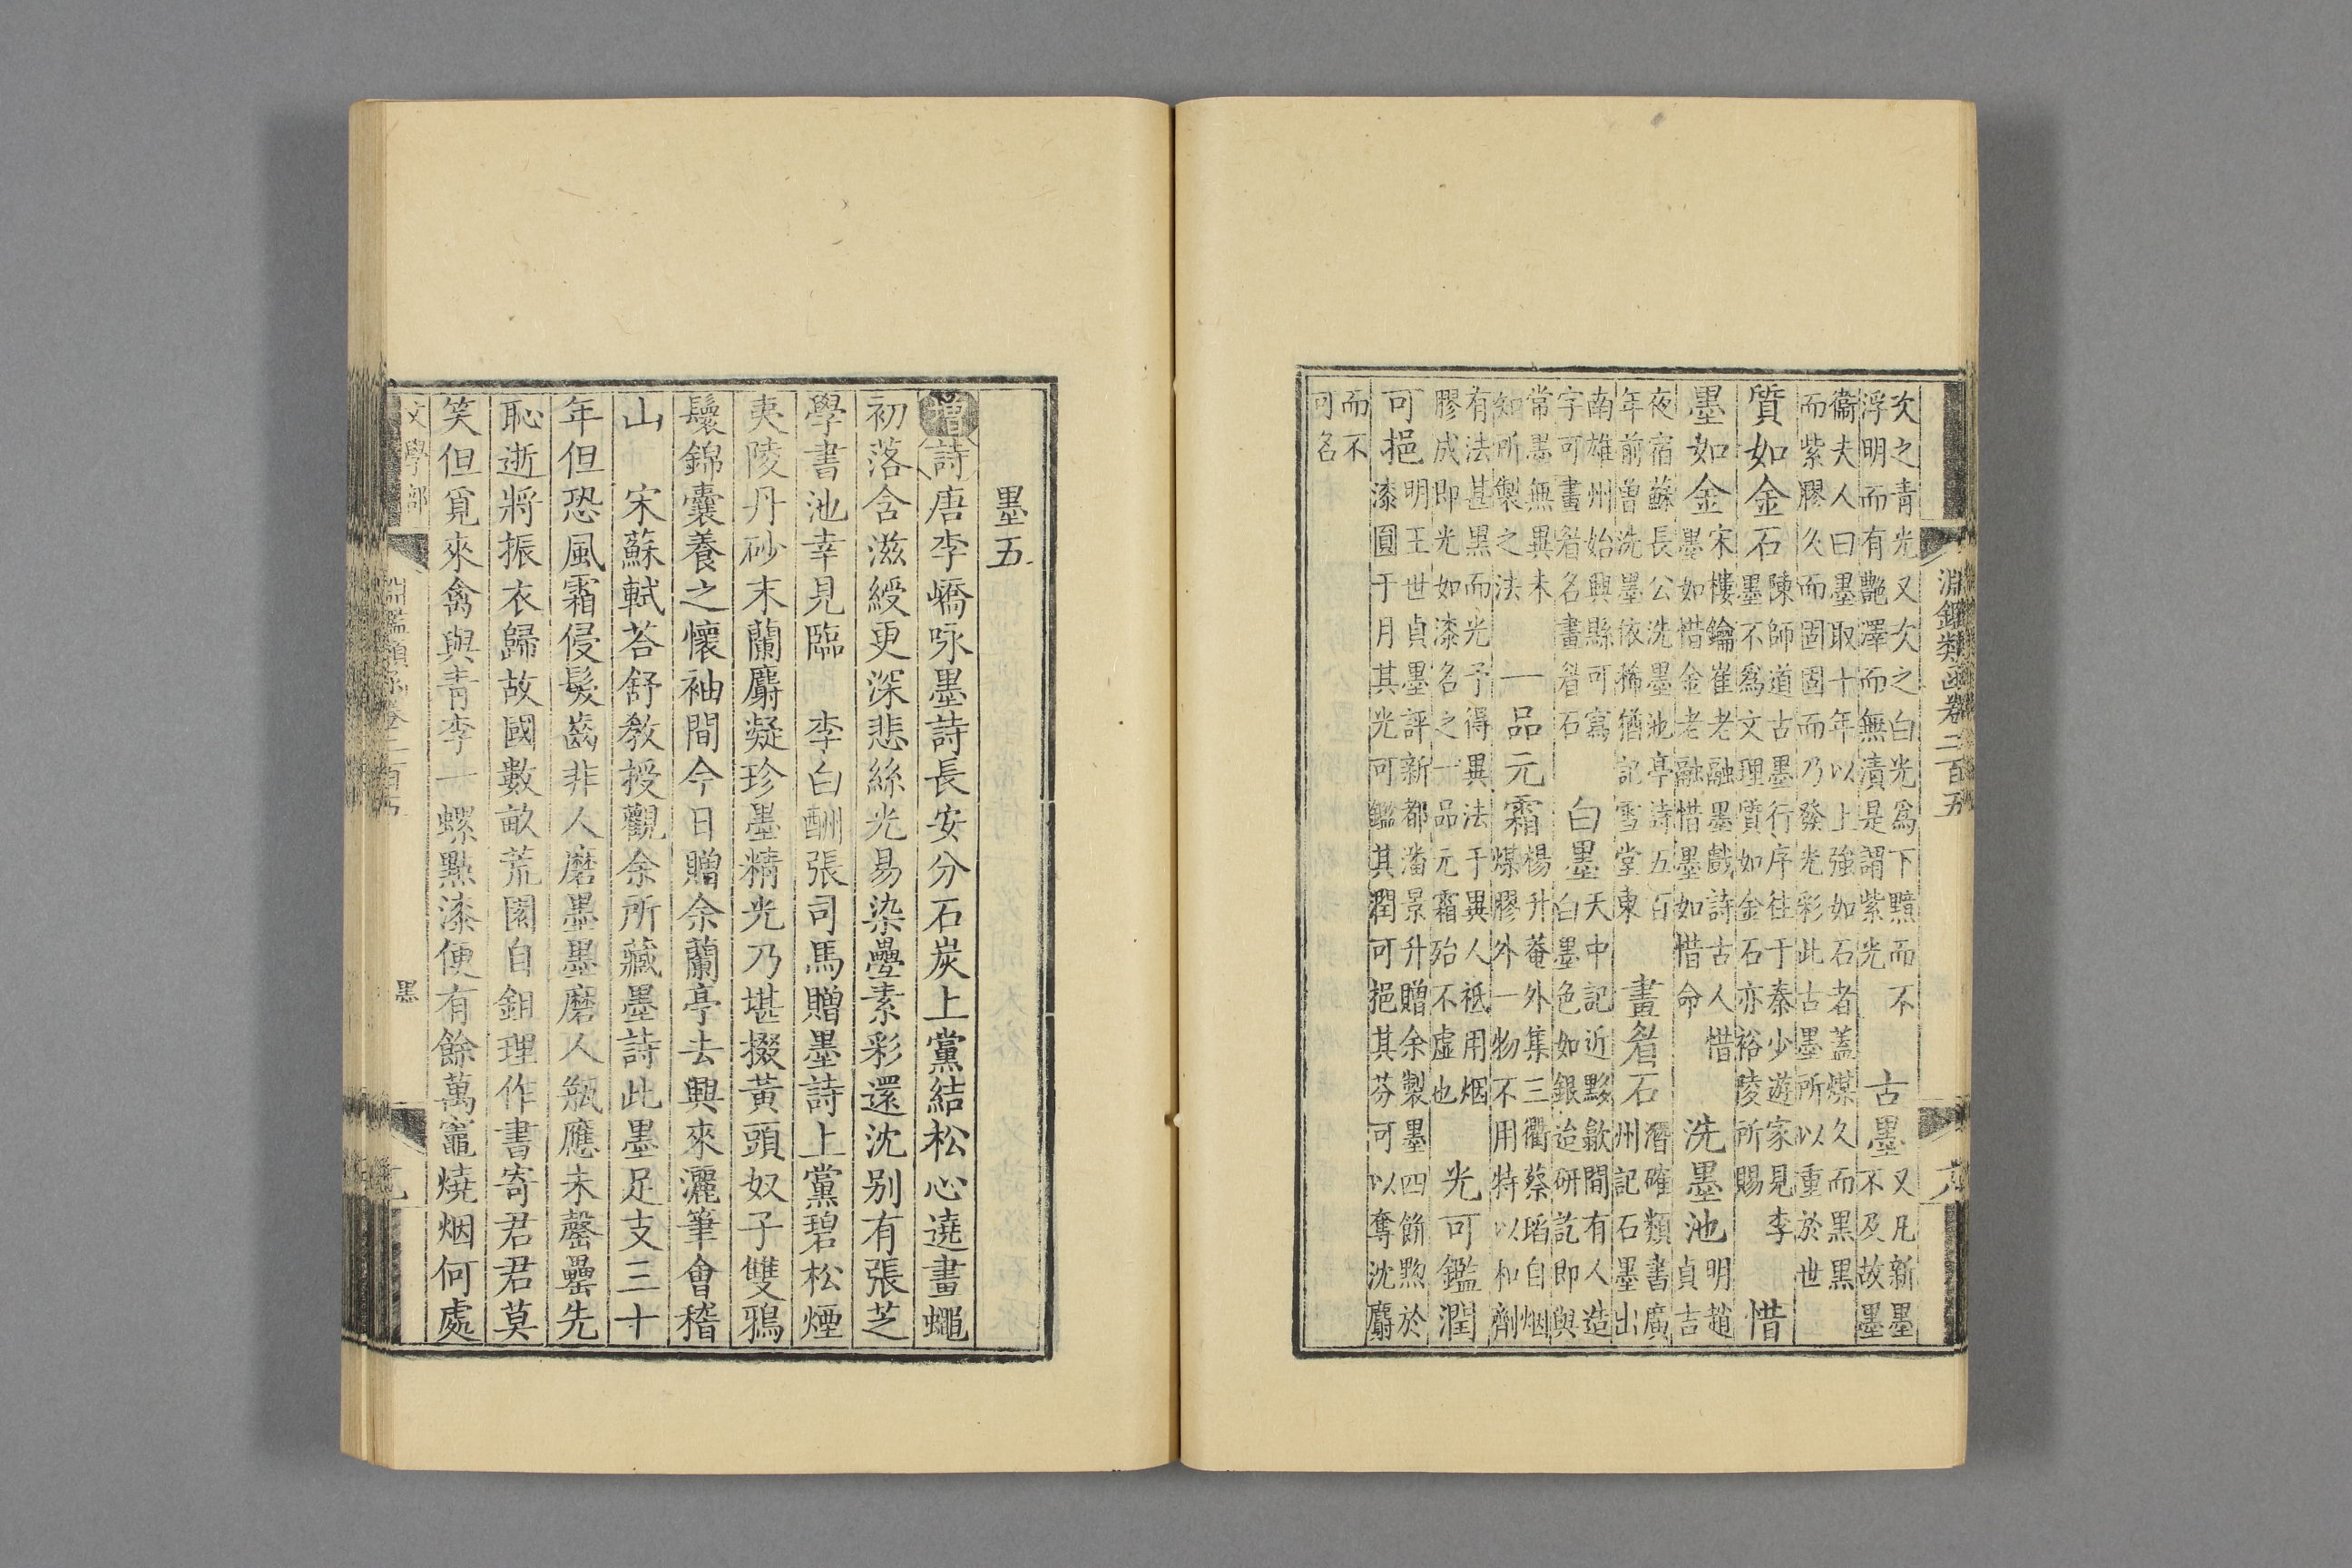 淵鑑類函卷二百五
次之青光又次之白光爲下黯而不
浮明而有艷澤而無漬是謂紫光
古墨
又凡新墨
不及故墨
衞夫人曰墨取十年以上強如石者蓋煤久而黑黑
而紫膠久而固固而乃發光彩此古墨所以重於世
質如金石
陳師道古墨行序往于秦少遊家見李
墨不爲文理質如金石亦裕陵所賜
惜
墨如金
宋樓鑰崔老融墨戲詩古人惜
墨如惜金老融惜墨如惜命
洗墨池
明趙
貞吉
夜宿蘇長公洗墨池亭詩五百
年前曾洗墨依稀猶記雪堂東
畫眉石
潛確類書廣
州記石墨出
南雄州始興縣可寫
字可畫眉名畫眉石
白墨
天中記近黟歙間有人造
白墨色如銀迨研訖即與
常墨無異未
知所製之法
一品元霜
楊升菴外集三衢蔡瑫自烟
煤膠外一物不用特以和劑
有法甚黑而光予得異法于異人祗用烟
膠成即光如漆名之一品元霜殆不虛也
光可鑑潤
可挹
明王世貞墨評新都潘景升贈余製墨四餅黝於
漆圓于月其光可鑑其潤可挹其芬可以奪沈麝
而不
可名
墨五
增詩唐李嶠咏墨詩長安分石炭上黨結松心遶畫蠅
初落含滋綬更深悲絲光易染疊素彩還沈别有張芝
學書池幸見臨　李白酬張司馬贈墨詩上黨碧松煙
夷陵丹砂末蘭麝凝珍墨精光乃堪掇黃頭奴子雙鴉
鬟錦囊養之懷袖間今日贈余蘭亭去興來灑筆會稽
山　宋蘇軾荅舒教授觀余所藏墨詩此墨足支三十
年但恐風霜侵髮齒非人磨墨墨磨人瓶應未罄罍先
恥逝將振衣歸故國數畝荒園自鉏理作書寄君君莫
笑但覓來禽與青李一螺點漆便有餘萬竈燒烟何處
文學部
墨